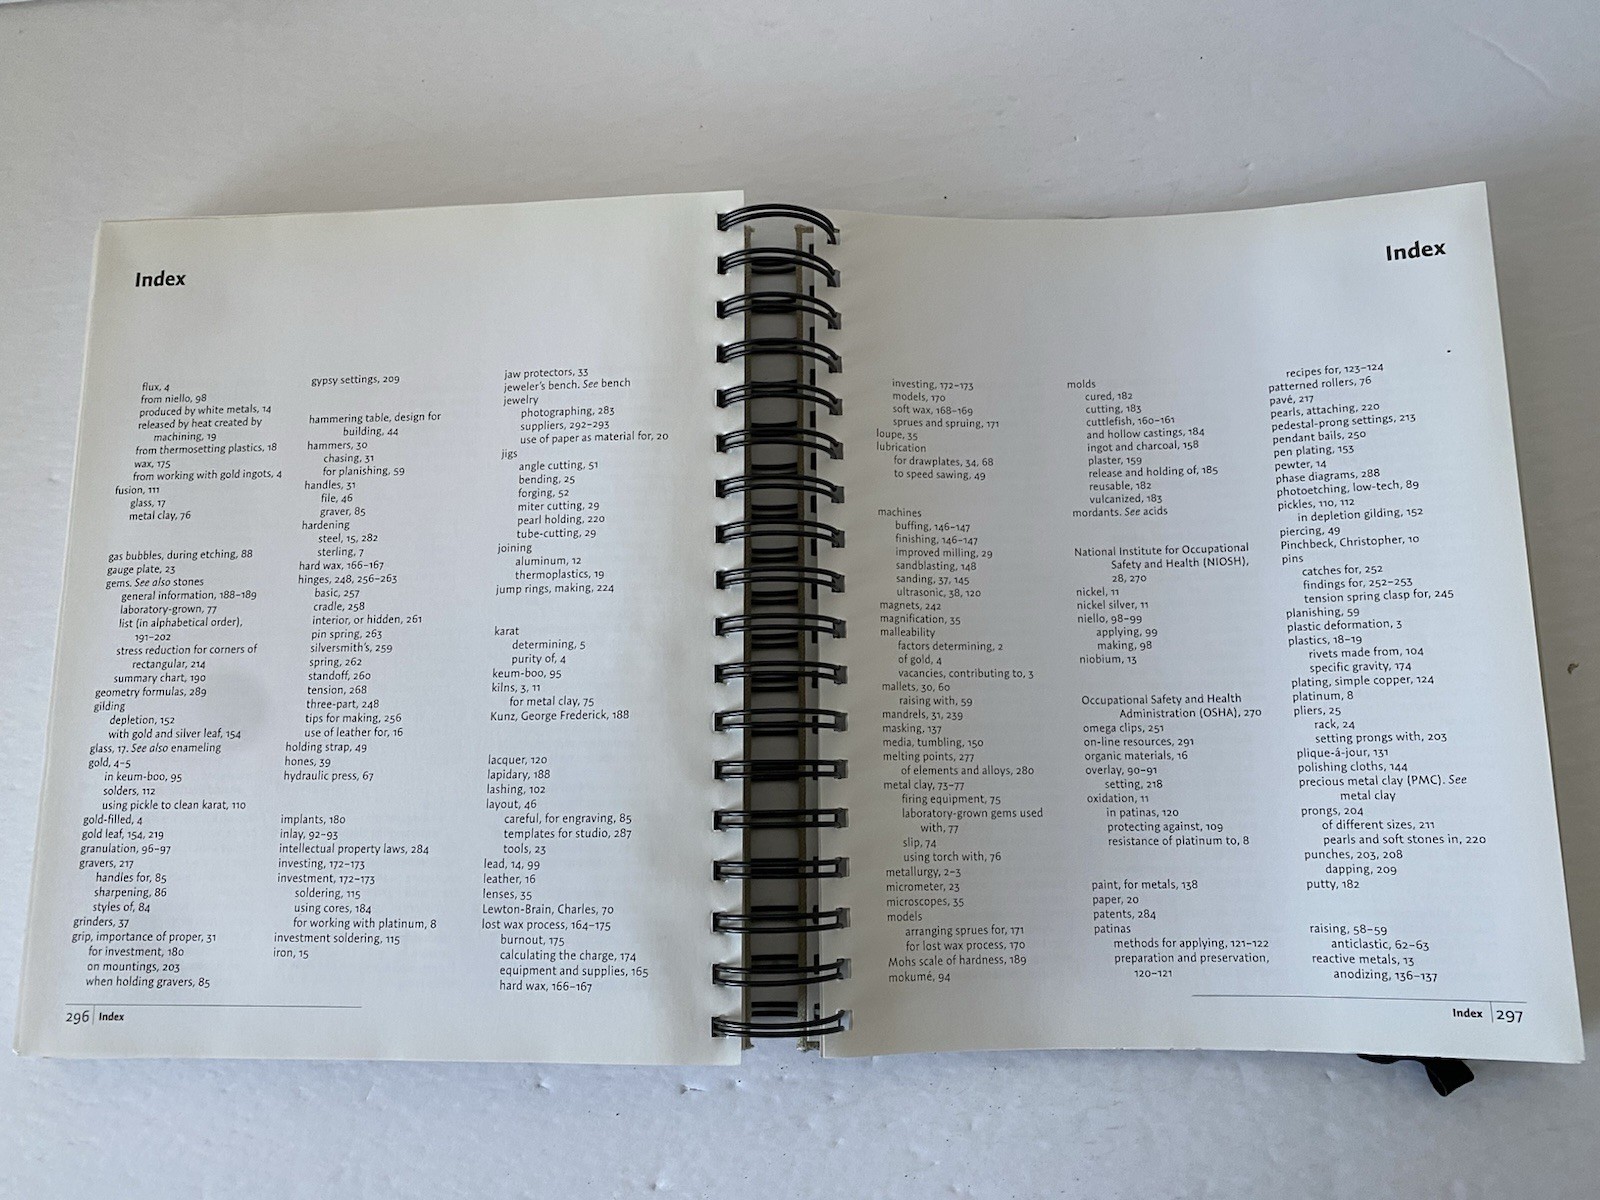 Index
flux, 4
from niello, 98
produced by white metals, 14
released by heat created by
machining, 19
from thermosetting plastics, 18
wax, 175
from working with gold ingots, 4
fusion, 111
glass, 17
metal clay, 76
gas bubbles, during etching, 88
gauge plate, 23
gems. See also stones
general information, 188–189
laboratory-grown, 77
list (in alphabetical order),
191–202
stress reduction for corners of
rectangular, 214
summary chart, 190
geometry formulas, 289
gilding
depletion, 152
with gold and silver leaf, 154
glass, 17. See also enameling
gold, 4–5
in keum-boo, 95
solders, 112
using pickle to clean karat, 110
gold-filled, 4
gold leaf, 154, 219
granulation, 96–97
gravers, 217
handles for, 85
sharpening, 86
styles of, 84
grinders, 37
grip, importance of proper, 31
for investment, 180
on mountings, 203
when holding gravers, 85
gypsy settings, 209
hammering table, design for
building, 44
hammers, 30
chasing, 31
for planishing, 59
handles, 31
file, 46
graver, 85
hardening
steel, 15, 282
sterling, 7
hard wax, 166–167
hinges, 248, 256–263
basic, 257
cradle, 258
interior, or hidden, 261
pin spring, 263
silversmith's, 259
spring, 262
standoff, 260
tension, 268
three-part, 248
tips for making, 256
use of leather for, 16
holding strap, 49
hones, 39
hydraulic press, 67
implants, 180
inlay, 92–93
intellectual property laws, 284
investing, 172–173
investment, 172–173
soldering, 115
using cores, 184
for working with platinum, 8
investment soldering, 115
iron, 15
jaw protectors, 33
jeweler's bench. See bench
jewelry
photographing, 283
suppliers, 292–293
use of paper as material for, 20
jigs
angle cutting, 51
bending, 25
forging, 52
miter cutting, 29
pearl holding, 220
tube-cutting, 29
joining
aluminum, 12
thermoplastics, 19
jump rings, making, 224
karat
determining, 5
purity of, 4
keum-boo, 95
kilns, 3, 11
for metal clay, 75
Kunz, George Frederick, 188
lacquer, 120
lapidary, 188
lashing, 102
layout, 46
careful, for engraving, 85
templates for studio, 287
tools, 23
lead, 14, 99
leather, 16
lenses, 35
Lewton-Brain, Charles, 70
lost wax process, 164–175
burnout, 175
calculating the charge, 174
equipment and supplies, 165
hard wax, 166–167
296 Index
Index
investing, 172–173
models, 170
soft wax, 168–169
sprues and spruing, 171
loupe, 35
lubrication
for drawplates, 34, 68
to speed sawing, 49
machines
buffing, 146–147
finishing, 146–147
improved milling, 29
sandblasting, 148
sanding, 37, 145
ultrasonic, 38, 120
magnets, 242
magnification, 35
malleability
factors determining, 2
of gold, 4
vacancies, contributing to, 3
mallets, 30, 60
raising with, 59
mandrels, 31, 239
masking, 137
media, tumbling, 150
melting points, 277
of elements and alloys, 280
metal clay, 73–77
firing equipment, 75
laboratory-grown gems used
with, 77
slip, 74
using torch with, 76
metallurgy, 2–3
micrometer, 23
microscopes, 35
models
arranging sprues for, 171
for lost wax process, 170
Mohs scale of hardness, 189
mokumé, 94
molds
cured, 182
cutting, 183
cuttlefish, 160–161
and hollow castings, 184
ingot and charcoal, 158
plaster, 159
release and holding of, 185
reusable, 182
vulcanized, 183
mordants. See acids
National Institute for Occupational
Safety and Health (NIOSH),
28, 270
nickel, 11
nickel silver, 11
niello, 98–99
applying, 99
making, 98
niobium, 13
Occupational Safety and Health
Administration (OSHA), 270
omega clips, 251
on-line resources, 291
organic materials, 16
overlay, 90–91
setting, 218
oxidation, 11
in patinas, 120
protecting against, 109
resistance of platinum to, 8
paint, for metals, 138
paper, 20
patents, 284
patinas
methods for applying, 121–122
preparation and preservation,
120–121
recipes for, 123–124
patterned rollers, 76
pavé, 217
pearls, attaching, 220
pedestal-prong settings, 213
pendant bails, 250
pen plating, 153
pewter, 14
phase diagrams, 288
photoetching, low-tech, 89
pickles, 110, 112
in depletion gilding, 152
piercing, 49
Pinchbeck, Christopher, 10
pins
catches for, 252
findings for, 252–253
tension spring clasp for, 245
planishing, 59
plastic deformation, 3
plastics, 18–19
rivets made from, 104
specific gravity, 174
plating, simple copper, 124
platinum, 8
pliers, 25
rack, 24
setting prongs with, 203
plique-á-jour, 131
polishing cloths, 144
precious metal clay (PMC). See
metal clay
prongs, 204
of different sizes, 211
pearls and soft stones in, 220
punches, 203, 208
dapping, 209
putty, 182
raising, 58–59
anticlastic, 62–63
reactive metals, 13
anodizing, 136–137
Index 297